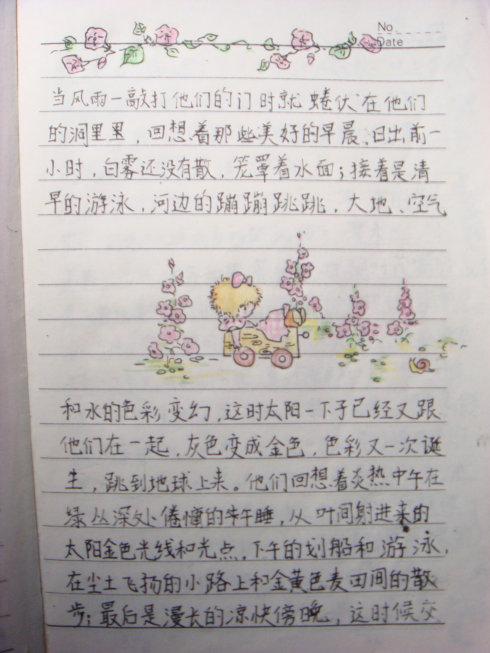 No
Date
当风雨一敲打他们的门时就蜷伏在他们
的洞里里，回想着那些美好的早晨、日出前一
小时，白雾还没有散，笼罩着水面；接着是清
早的游泳，河边的蹦蹦跳跳，大地、空气
和水的色彩变幻，这时太阳一下子已经又跟
他们在一起，灰色变成金色，色彩又一次诞
生，跳到地球上来。他们回想着炎热中午在
绿丛深处倦懂的午睡，从叶间射进来的
太阳金色光线和光点，下午的划船和游泳，
在尘土飞扬的小路上和金黄色麦田间的散
步；最后是漫长的凉快傍晚，这时候交